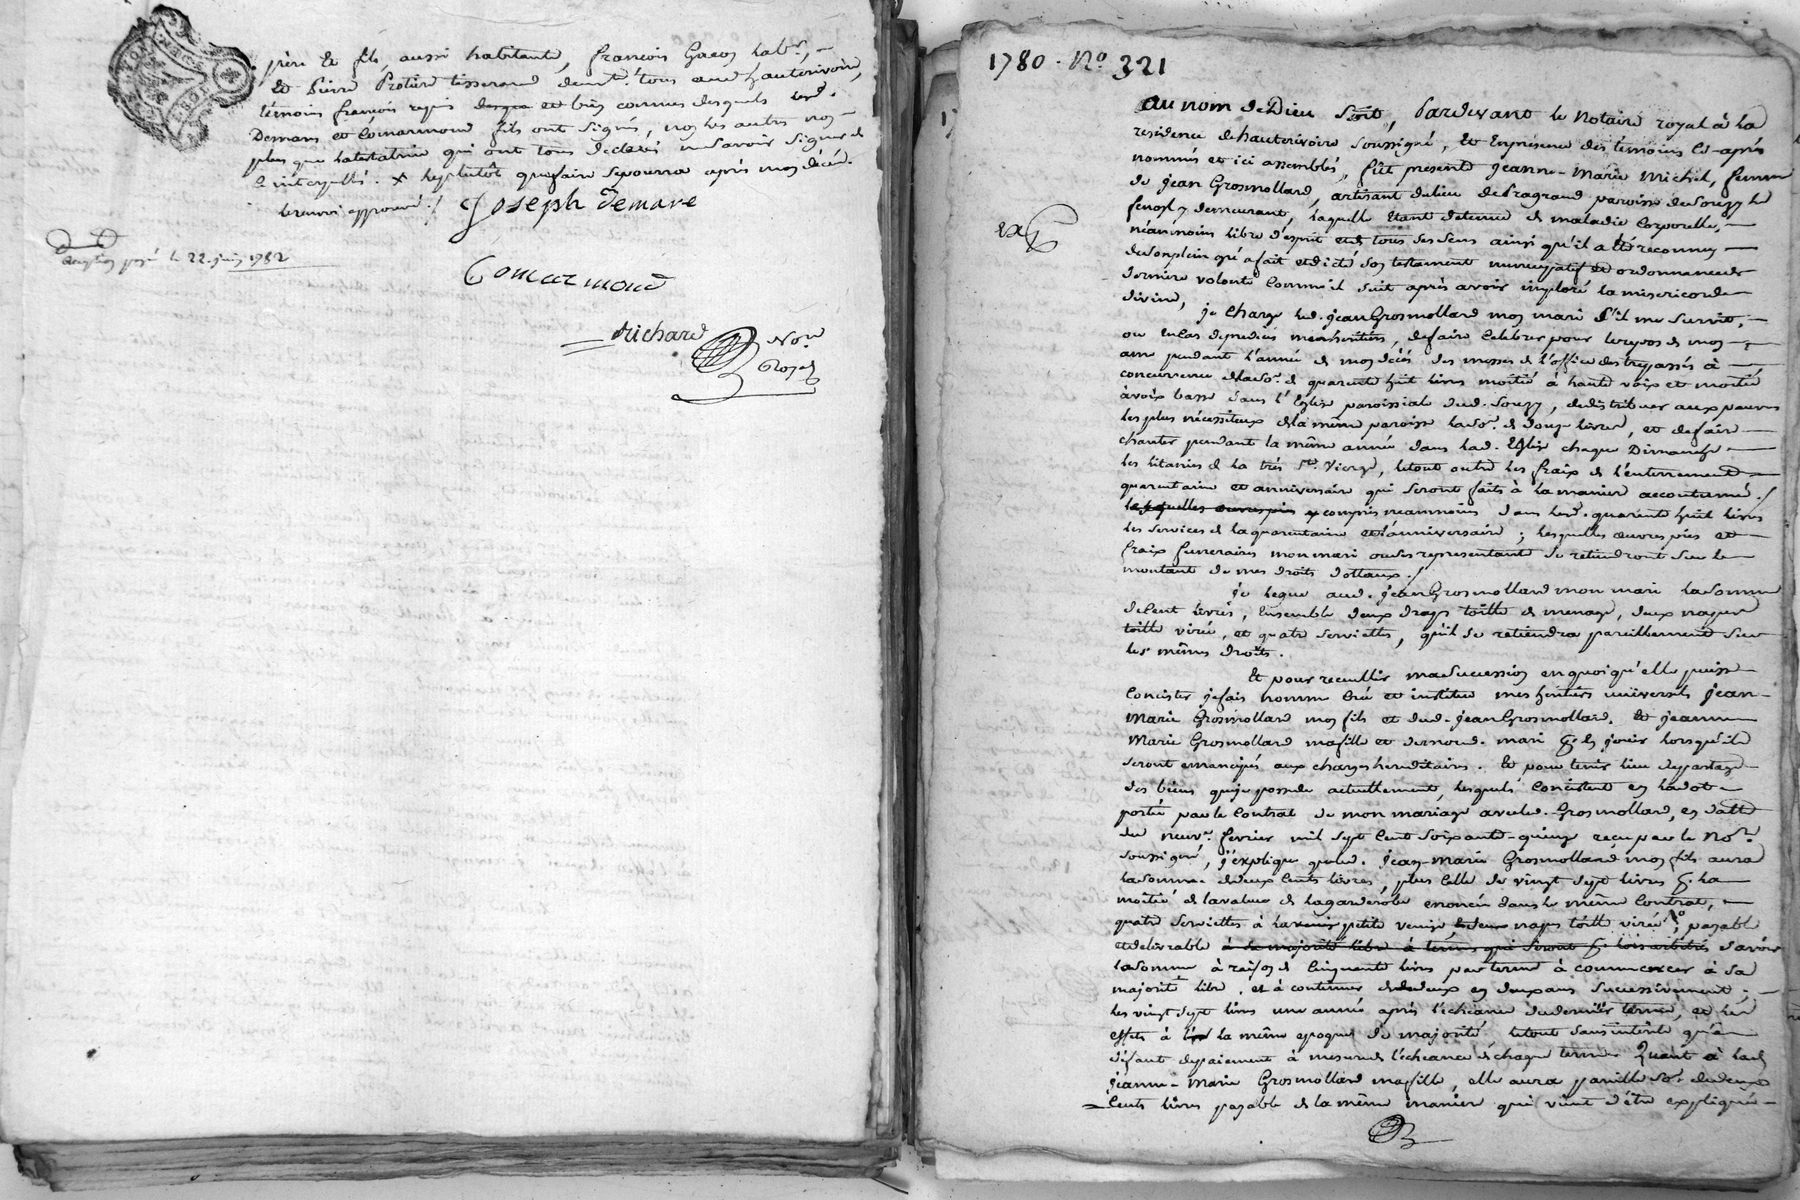 père et fils, aussi habitants, françois Gacon lab.r,
et Pierre Protiere tisserand demt. tous aud. hauterivoire,
témoins françois requis et bien connus desquels lesd.
Demare et Comarmond fils ont signés, non les autres non
plus que latestatrice qui ont tous declarés ne savoir signer de
ce interpellés. x leplutôt que faire sepourra après mon décéd.
le renvoi approuvé./.
Joseph Demare
Comarmond
Richard Nore
Royal
payé le 22. juin 1782
1780. No. 321
Au nom de Dieu Soit, Pardevant le Notaire royal à la
residence de hauterivoire soussigné, et en presence des témoins ci-après
nommés et ici assemblés, fût present Jeanne-Marie Michel, femme
de Jean Grosmollard, artisant du lieu de Pragrand paroisse de Souzy le
y demeurant, laquelle étant detenue de maladie corporelle,
néanmoins libre d'esprit et de tous ses sens ainsi qu'il a été reconnu
de son plein gré a fait et dicté son testament nuncupatif et ordonnance de
derniere volonté comme il suit après avoir imploré la misericorde
divine, je charge led. jean Grosmollard mon mari s'il me survit,
ou en cas de predecés mes heritiers, de faire celebrer pour le repos de mon
ame pendant l'année de mon décés des messes de l'office des trepassés à
concurrence de la so. de quarente huit livres moitié à haute voix et moitié
à voix basse dans l'Eglise paroissiale dud. Souzy, de distribuer aux pauvres
les plus nécessiteux de la même paroisse la so. de douze livres, et de faire
chanter pendant la même année dans lad. Eglise chaque Dimanche
les litanies de la très Ste. Vierge, le tout outre les fraix de l'enterrement
quarentaine et anniversaire qui seront faits à la maniere accoutumée./.
lesquelles œuvres pies y compris neanmoins dans lesd. quarente huit livres
les services de la quarentaine et l'anniversaire; lesquelles œuvres pies et
fraix funeraires mon mari ou ses representant se retiendront sur le
montant de mes droits dottaux./.
je legue aud. jean Grosmollard mon mari la somme
de cent livres, ensemble deux draps toille de menage, deux nappes
toille virée, et quatre serviettes, qu'il se retiendra pareillement sur
les mêmes droits.
Et pour recueillir ma succession en quoi qu'elle puisse
concister je fais nomme créé et institue mes heritiers universels jean-
Marie Grosmollard mon fils et dud. jean Grosmollard, et jeanne
Marie Grosmollard ma fille et de mond. mari p. en jouir lorsqu'ils
seront emancipés aux charges hereditaires. Et pour tenir lieu de partage
des biens que je possede actuellement, lesquels concistent en la dot
portée par le contrat de mon mariage avec led. Grosmollard, en datte
du neuv. fevrier mil sept cent soixante-quinze reçu par le Nore.
soussigné, j'explique que led. jean-Marie Grosmollard mon fils aura
la somme de deux cents livres, plus celle de vingt sept livres p. la
moitié de la valeur de la garderobe enoncée dans le même contrat,
quatre serviettes à la petite venise nappes toille virée, payable
et delivrable à sa majorité libre à termes qui seront savoir
la somme à raison de cinquante livres par terme à commencer à sa
majorité libre, et à continuer de deux en deux ans successivement;
les vingt sept livres une année après l'echeance du dernier terme, et les
effets à la même epoque de majorité. le tout sans interêt qu'à
défaut de paiement à mesure de l'écheance de chaque terme. Quant à lad.
jeanne-Marie Grosmollard ma fille, elle aura pareille so. de deux
cents livres payable de la même maniere qui vient d'être expliquée